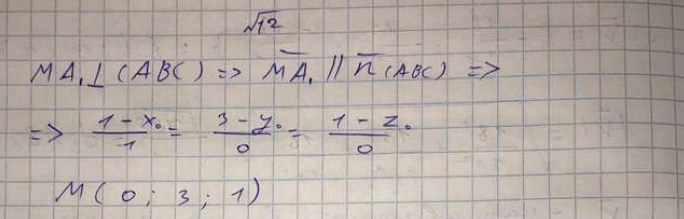 √12
MA₁⊥(ABC) => M̅A̅₁ || n̅(ABC) =>
=> (1-x₀)/1 = (3-y₀)/0 = (1-z₀)/0
M(0; 3; 1)